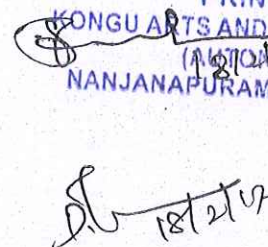 PRIN
KONGU ARTS AND
(AUTON
18/2
NANJANAPURAM
18/2/17